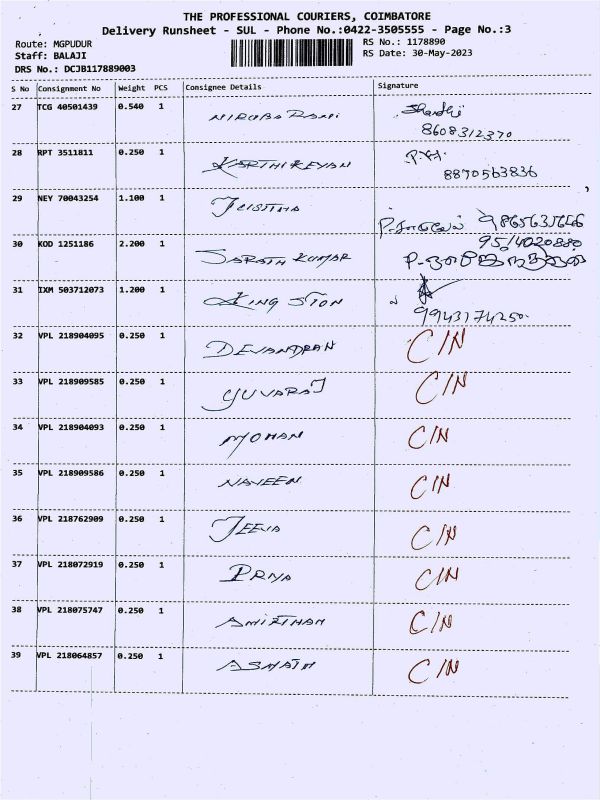 THE PROFESSIONAL COURIERS, COIMBATORE
Delivery Runsheet - SUL - Phone No.:0422-3505555 - Page No.:3
Route: MGPUDUR RS No.: 1178890
Staff: BALAJI RS Date: 30-May-2023
DRS No.: DCJB117889003
S No Consignment No Weight PCS Consignee Details Signature
27 TCG 40501439 0.540 1 NIRUBA RANI
8608312370
28 RPT 3511811 0.250 1 KARTHIKEYAN
8870563836
29 NEY 70043254 1.100 1
30 KOD 1251186 2.200 1 SARATH KUMAR 9514020880
31 IXM 503712073 1.200 1 KINGSTON
9943174250
32 VPL 218904095 0.250 1 DEVANDRAN C/N
33 VPL 218909585 0.250 1 YUVARAJ C/N
34 VPL 218904093 0.250 1 MOHAN C/N
35 VPL 218909586 0.250 1 NAVEEN C/N
36 VPL 218762909 0.250 1 JEEVA C/N
37 VPL 218072919 0.250 1 PRIYA C/N
38 VPL 218075747 0.250 1 AMIRTHAM C/N
39 VPL 218064857 0.250 1 C/N